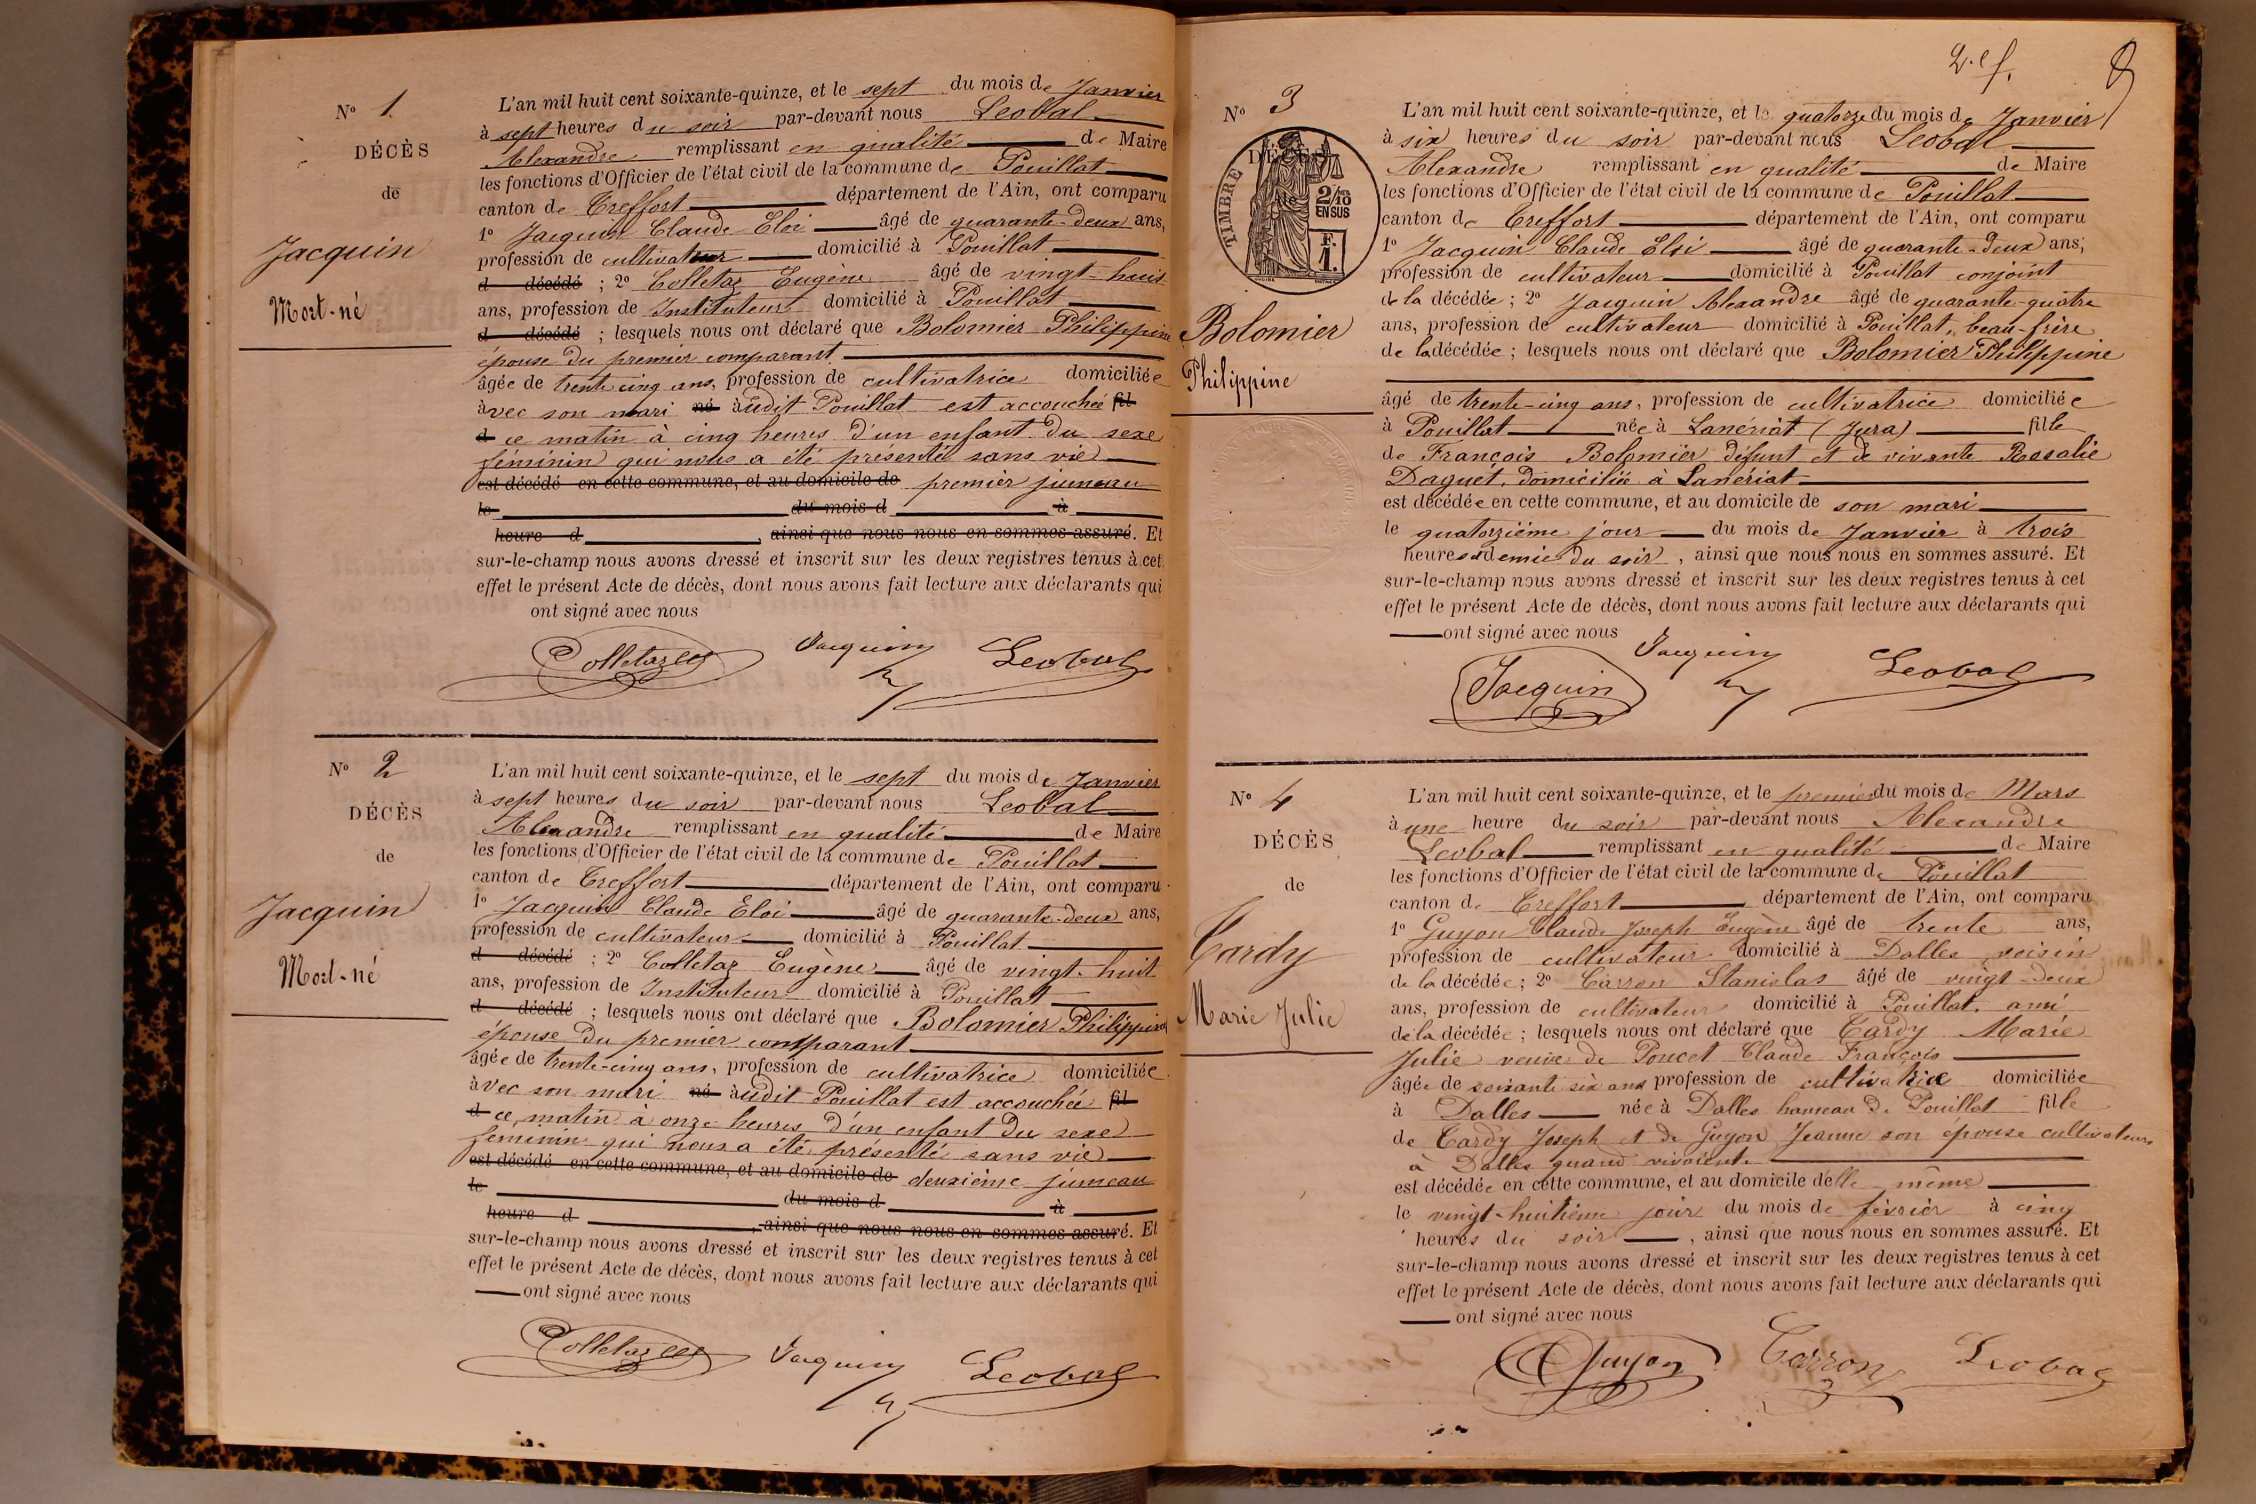 N° 1
DÉCÈS
de
Jacquin
Mort-né
L'an mil huit cent soixante-quinze, et le sept du mois de Janvier
à sept heures du soir par-devant nous Leobal
Alexandre remplissant en qualité de Maire
les fonctions d'Officier de l'état civil de la commune de Pouillat
canton de Treffort département de l'Ain, ont comparu
1° Jacquin Claude Eloi âgé de quarante-deux ans,
profession de cultivateur domicilié à Pouillat
d décédé ; 2° Colletaz Eugène âgé de vingt-huit
ans, profession de Instituteur domicilié à Pouillat
d décédé ; lesquels nous ont déclaré que Bolomier Philippine
épouse du premier comparant
âgée de trente cinq ans, profession de cultivatrice domiciliée
avec son mari né audit Pouillat est accouchée fil
d ce matin à cinq heures d'un enfant du sexe
féminin qui nous a été présenté sans vie
est décédé en cette commune, et au domicile de premier jumeau
le du mois d à
heure d , ainsi que nous nous en sommes assuré. Et
sur-le-champ nous avons dressé et inscrit sur les deux registres tenus à cet
effet le présent Acte de décès, dont nous avons fait lecture aux déclarants qui
ont signé avec nous
Colletaz Jacquin Leobal
N° 2
DÉCÈS
de
Jacquin
Mort-né
L'an mil huit cent soixante-quinze, et le sept du mois de Janvier
à sept heures du soir par-devant nous Leobal
Alexandre remplissant en qualité de Maire
les fonctions d'Officier de l'état civil de la commune de Pouillat
canton de Treffort département de l'Ain, ont comparu
1° Jacquin Claude Eloi âgé de quarante-deux ans,
profession de cultivateur domicilié à Pouillat
d décédé ; 2° Colletaz Eugène âgé de vingt-huit
ans, profession de Instituteur domicilié à Pouillat
d décédé ; lesquels nous ont déclaré que Bolomier Philippine
épouse du premier comparant
âgée de trente-cinq ans, profession de cultivatrice domiciliée
avec son mari né audit Pouillat est accouchée fil
d ce matin à onze heures d'un enfant du sexe
féminin qui nous a été présenté sans vie
est décédé en cette commune, et au domicile de deuxième jumeau
le du mois d à
heure d , ainsi que nous nous en sommes assuré. Et
sur-le-champ nous avons dressé et inscrit sur les deux registres tenus à cet
effet le présent Acte de décès, dont nous avons fait lecture aux déclarants qui
ont signé avec nous
Colletaz Jacquin Leobal
2.e f.
N° 3
DÉCÈS
de
TIMBRE
2/10
EN SUS
F.
1.
Bolomier
Philippine
L'an mil huit cent soixante-quinze, et le quatorze du mois de Janvier
à six heures du soir par-devant nous Leobal
Alexandre remplissant en qualité de Maire
les fonctions d'Officier de l'état civil de la commune de Pouillat
canton de Treffort département de l'Ain, ont comparu
1° Jacquin Claude Eloi âgé de quarante-deux ans,
profession de cultivateur domicilié à Pouillat conjoint
de la décédée ; 2° Jacquin Alexandre âgé de quarante-quatre
ans, profession de cultivateur domicilié à Pouillat, beau-frère
de la décédée ; lesquels nous ont déclaré que Bolomier Philippine
âgé de trente-cinq ans, profession de cultivatrice domiciliée
à Pouillat née à Lanériat (Jura) fille
de François Bolomier défunt et de vivante Rosalie
Daguet, domiciliée à Lanériat
est décédée en cette commune, et au domicile de son mari
le quatorzième jour du mois de Janvier à trois
heures et demie du soir, ainsi que nous nous en sommes assuré. Et
sur-le-champ nous avons dressé et inscrit sur les deux registres tenus à cet
effet le présent Acte de décès, dont nous avons fait lecture aux déclarants qui
ont signé avec nous
Jacquin Jacquin Leobal
N° 4
DÉCÈS
de
Cardy
Marie Julie
L'an mil huit cent soixante-quinze, et le premier du mois de Mars
à une heure du soir par-devant nous Alexandre
Leobal remplissant en qualité de Maire
les fonctions d'Officier de l'état civil de la commune de Pouillat
canton de Treffort département de l'Ain, ont comparu
1° Guyon Claude Joseph Eugène âgé de trente ans,
profession de cultivateur domicilié à Dalles voisin
de la décédée ; 2° Carron Stanislas âgé de vingt-deux
ans, profession de cultivateur domicilié à Pouillat, ami
de la décédée ; lesquels nous ont déclaré que Cardy Marie
Julie veuve de Poncet Claude François
âgée de soixante six ans profession de cultivatrice domiciliée
à Dalles née à Dalles hameau de Pouillat fille
de Cardy Joseph et de Guyon Jeanne son épouse cultivateurs
à Dalles quand vivaient
est décédée en cette commune, et au domicile d'elle même
le vingt-huitième jour du mois de février à cinq
heures du soir, ainsi que nous nous en sommes assuré. Et
sur-le-champ nous avons dressé et inscrit sur les deux registres tenus à cet
effet le présent Acte de décès, dont nous avons fait lecture aux déclarants qui
ont signé avec nous
Guyon Carron Leobal